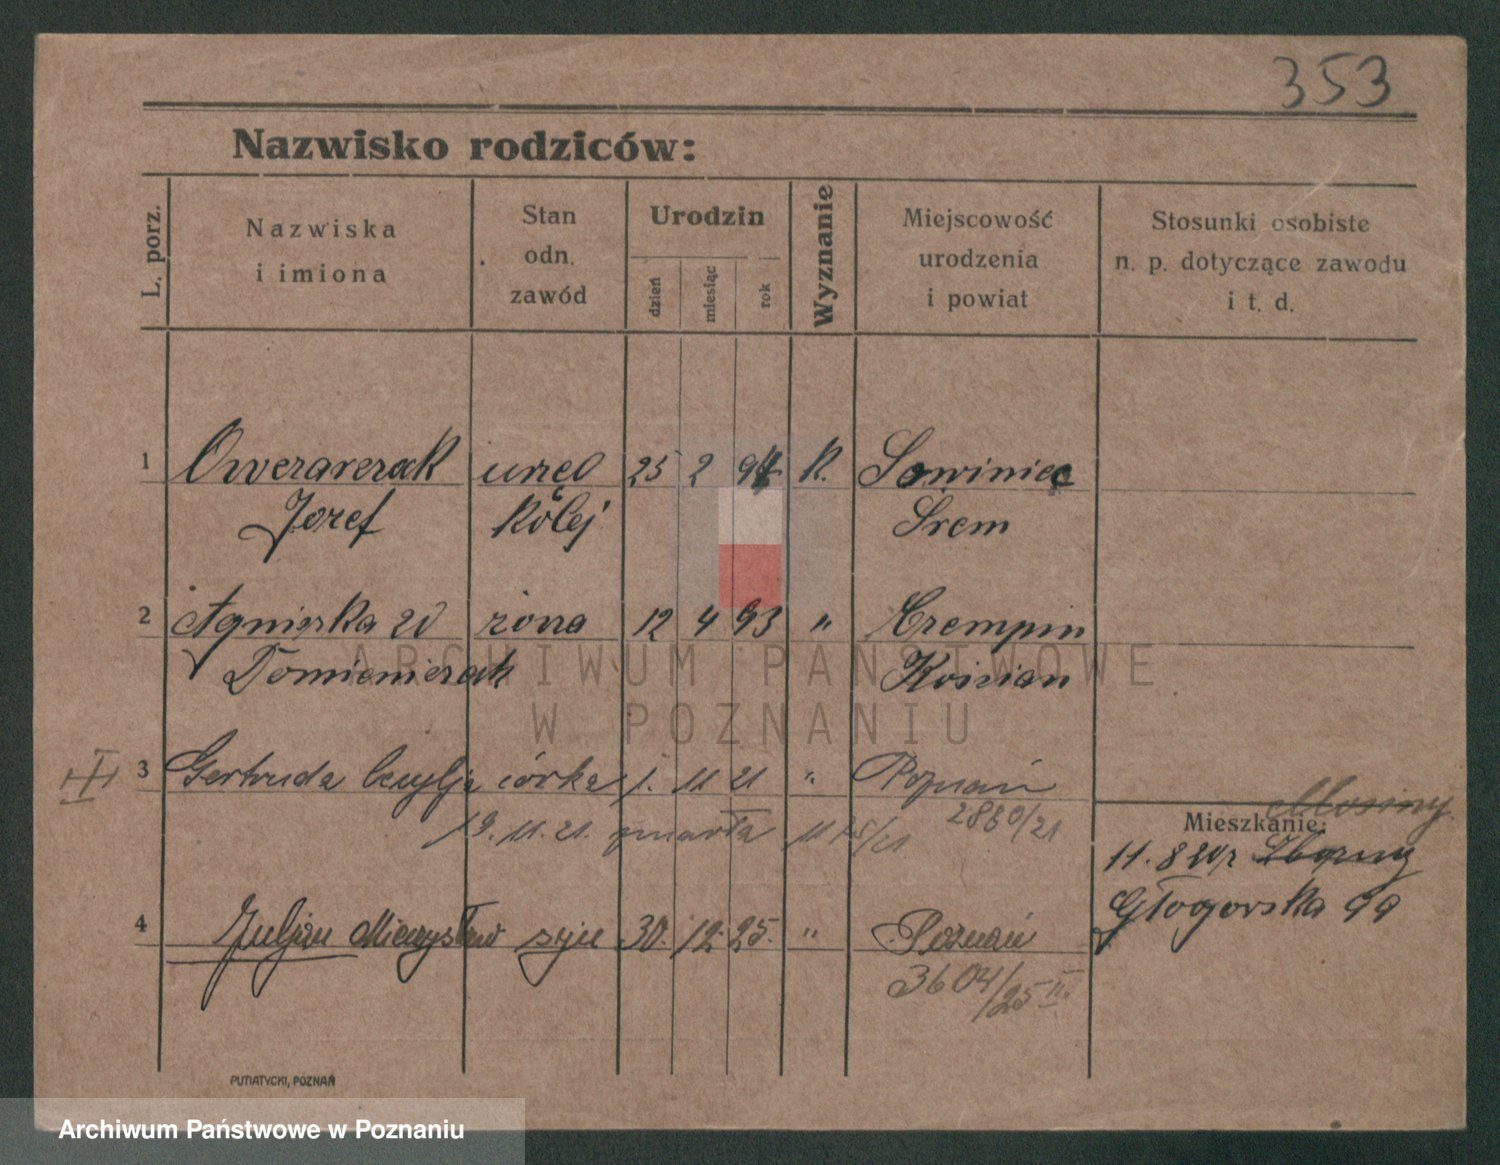 353
Nazwisko rodziców:
L. porz.
Nazwiska
i imiona
Stan
odn.
zawód
Urodzin
dzień
miesiąc
rok
Wyznanie
Miejscowość
urodzenia
i powiat
Stosunki osobiste
n. p. dotyczące zawodu
i t. d.
1 Owczarczak urzęd 25 2 94 K. Sowiniec
Józef kolej Śrem
2 Agnieszka zd żona 12 4 93 " Czempiń
Domieniczak Kościan
3 Gertruda Cecylja córka 1. 11 21 " Poznań
19. 11. 21. zmarła 1175/21 2880/21
Mieszkanie: Mosiny
11. 8 20r
Głogorska 99
4 Juljan Mieczysław syn 30. 12. 25. " Poznań
3604/25 II.
PUTIATYCKI, POZNAŃ
ARCHIWUM PAŃSTWOWE
W POZNANIU
Archiwum Państwowe w Poznaniu